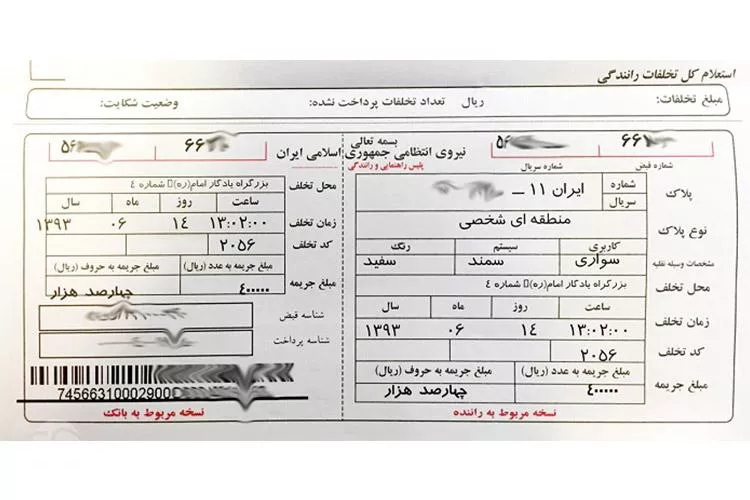 استعلام کل تخلفات رانندگی
مبلغ تخلفات: ریال تعداد تخلفات پرداخت نشده: وضعیت شکایت:
بسمه تعالی
نیروی انتظامی جمهوری اسلامی ایران
پلیس راهنمایی و رانندگی
شماره قبض
شماره سریال
پلاک
شماره
سریال
ایران ۱۱ ــ
نوع پلاک
منطقه ای شخصی
مشخصات وسیله نقلیه
کاربری سیستم رنگ
سواری سمند سفید
محل تخلف
بزرگراه یادگار امام(ره)▯ شماره ٤
زمان تخلف
ساعت روز ماه سال
۱۳:۰۲:۰۰ ۱۴ ۰۶ ۱۳۹۳
کد تخلف
۲۰۵۶
مبلغ جریمه
مبلغ جریمه به عدد (ریال) مبلغ جریمه به حروف (ریال)
۴۰۰۰۰۰ چهارصد هزار
نسخه مربوط به راننده
محل تخلف
بزرگراه یادگار امام(ره)▯ شماره ٤
زمان تخلف
ساعت روز ماه سال
۱۳:۰۲:۰۰ ۱۴ ۰۶ ۱۳۹۳
کد تخلف
۲۰۵۶
مبلغ جریمه
مبلغ جریمه به عدد (ریال) مبلغ جریمه به حروف (ریال)
۴۰۰۰۰۰ چهارصد هزار
شناسه قبض
شناسه پرداخت
74566310002900
نسخه مربوط به بانک